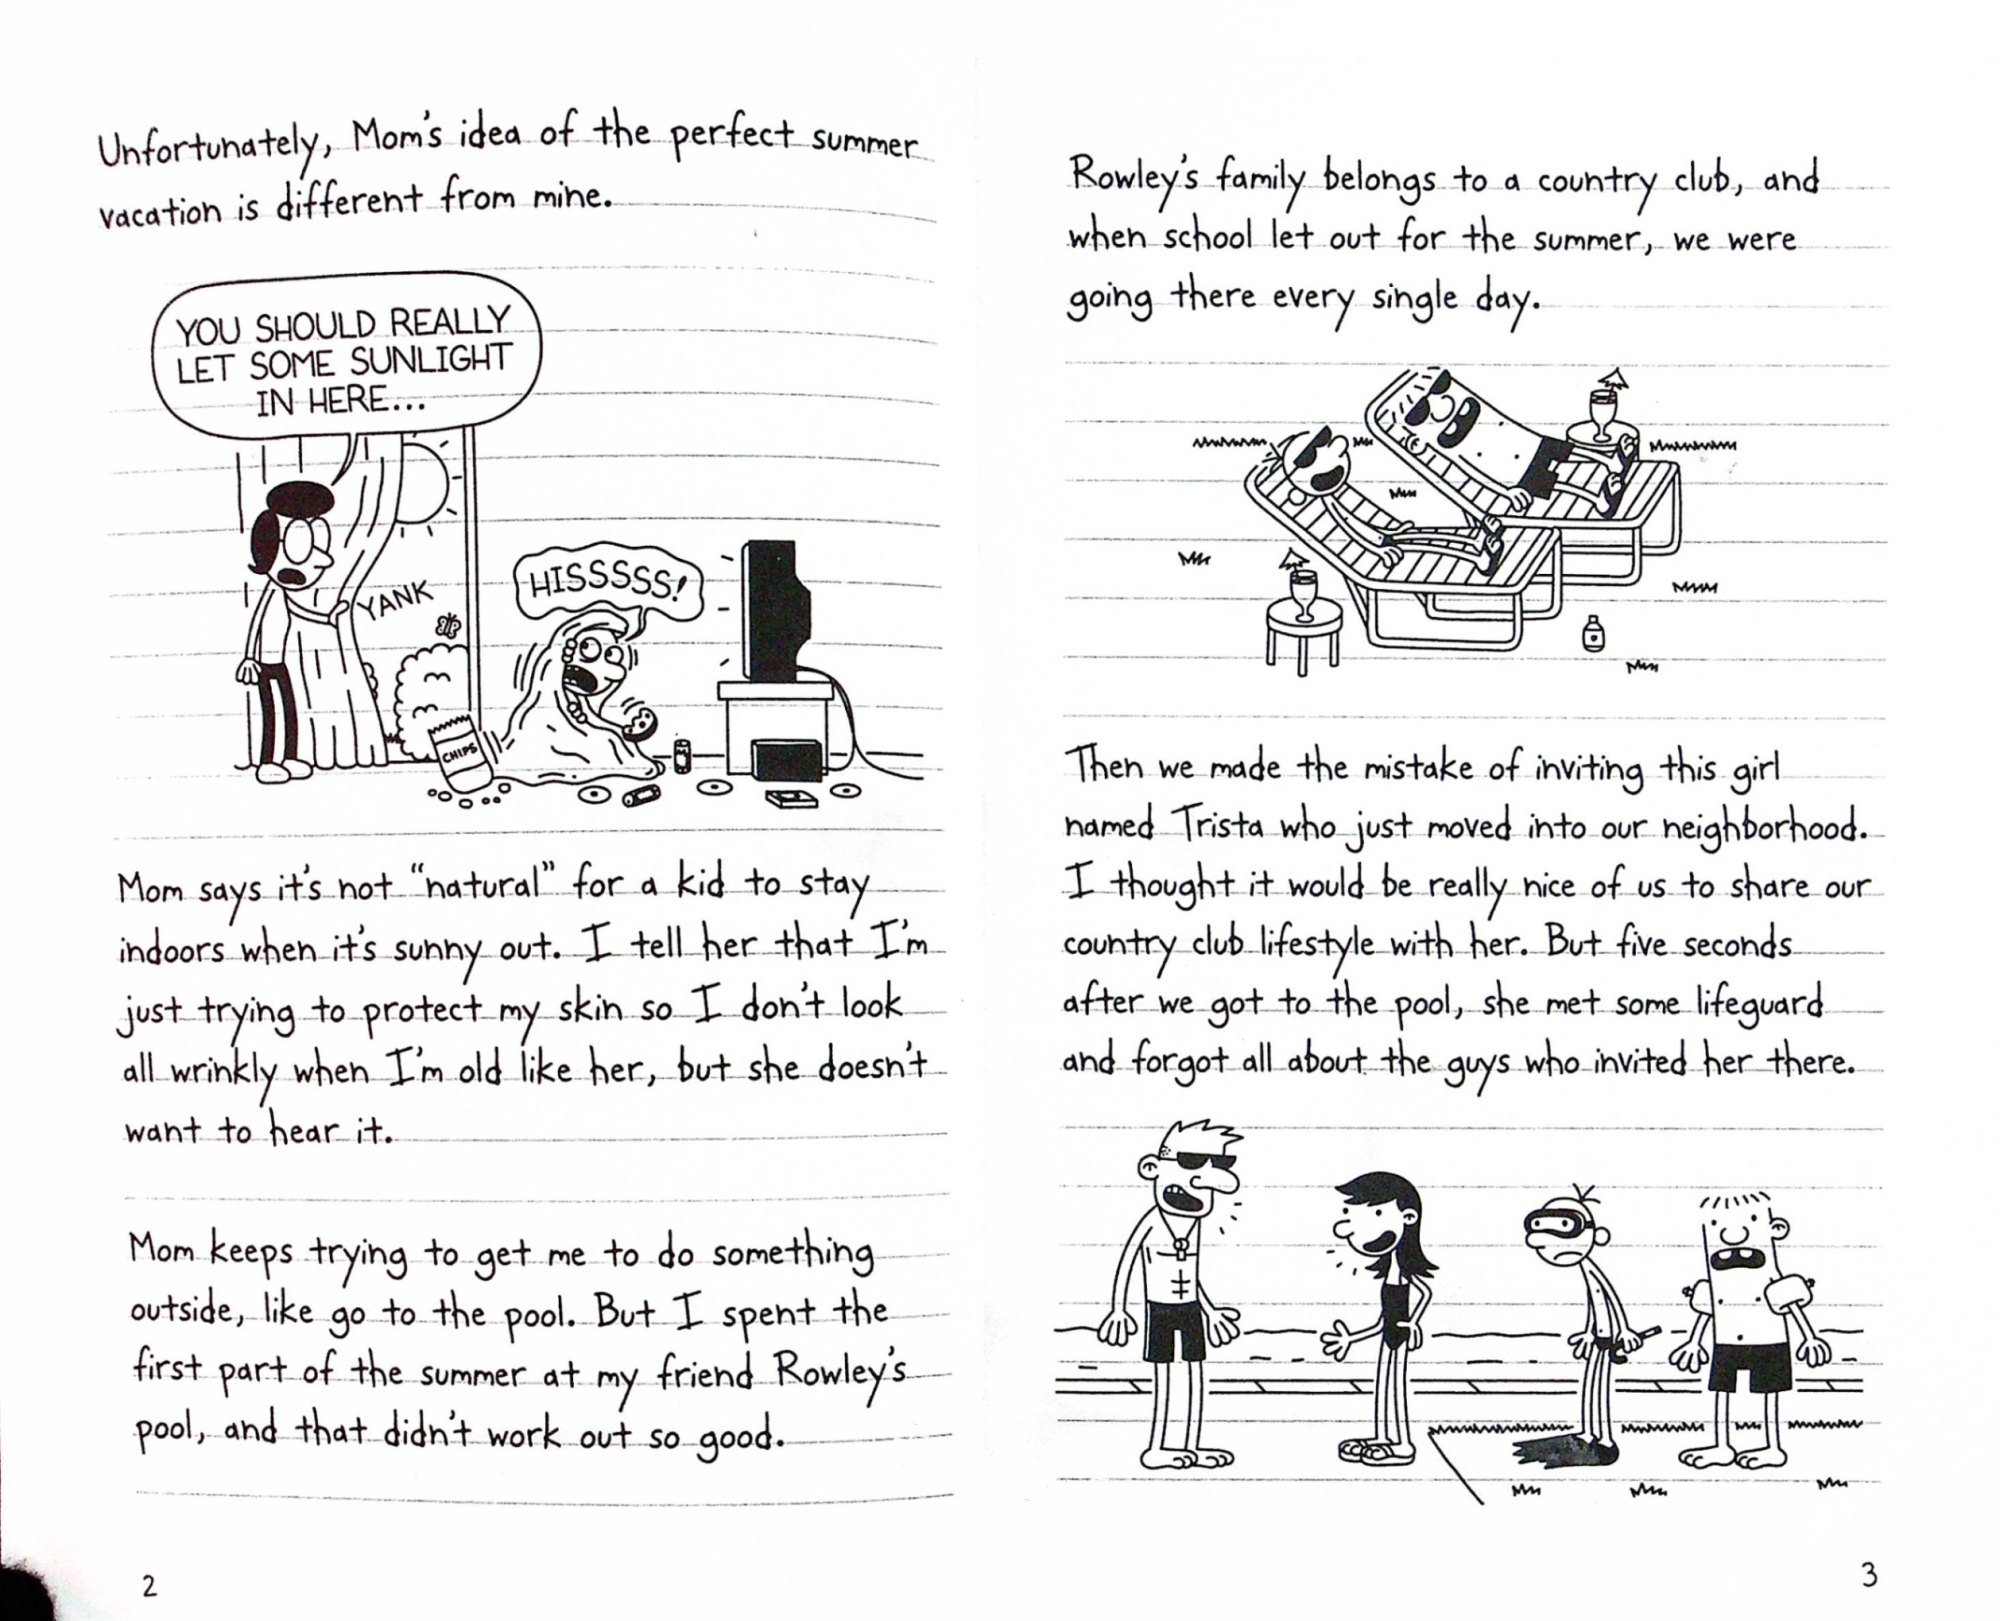 Unfortunately, Mom's idea of the perfect summer
vacation is different from mine.
YOU SHOULD REALLY
LET SOME SUNLIGHT
IN HERE...
YANK
HISSSSS!
CHIPS
Mom says it's not "natural" for a kid to stay
indoors when it's sunny out. I tell her that I'm
just trying to protect my skin so I don't look
all wrinkly when I'm old like her, but she doesn't
want to hear it.
Mom keeps trying to get me to do something
outside, like go to the pool. But I spent the
first part of the summer at my friend Rowley's
pool, and that didn't work out so good.
2
Rowley's family belongs to a country club, and
when school let out for the summer, we were
going there every single day.
Then we made the mistake of inviting this girl
named Trista who just moved into our neighborhood.
I thought it would be really nice of us to share our
country club lifestyle with her. But five seconds
after we got to the pool, she met some lifeguard
and forgot all about the guys who invited her there.
3